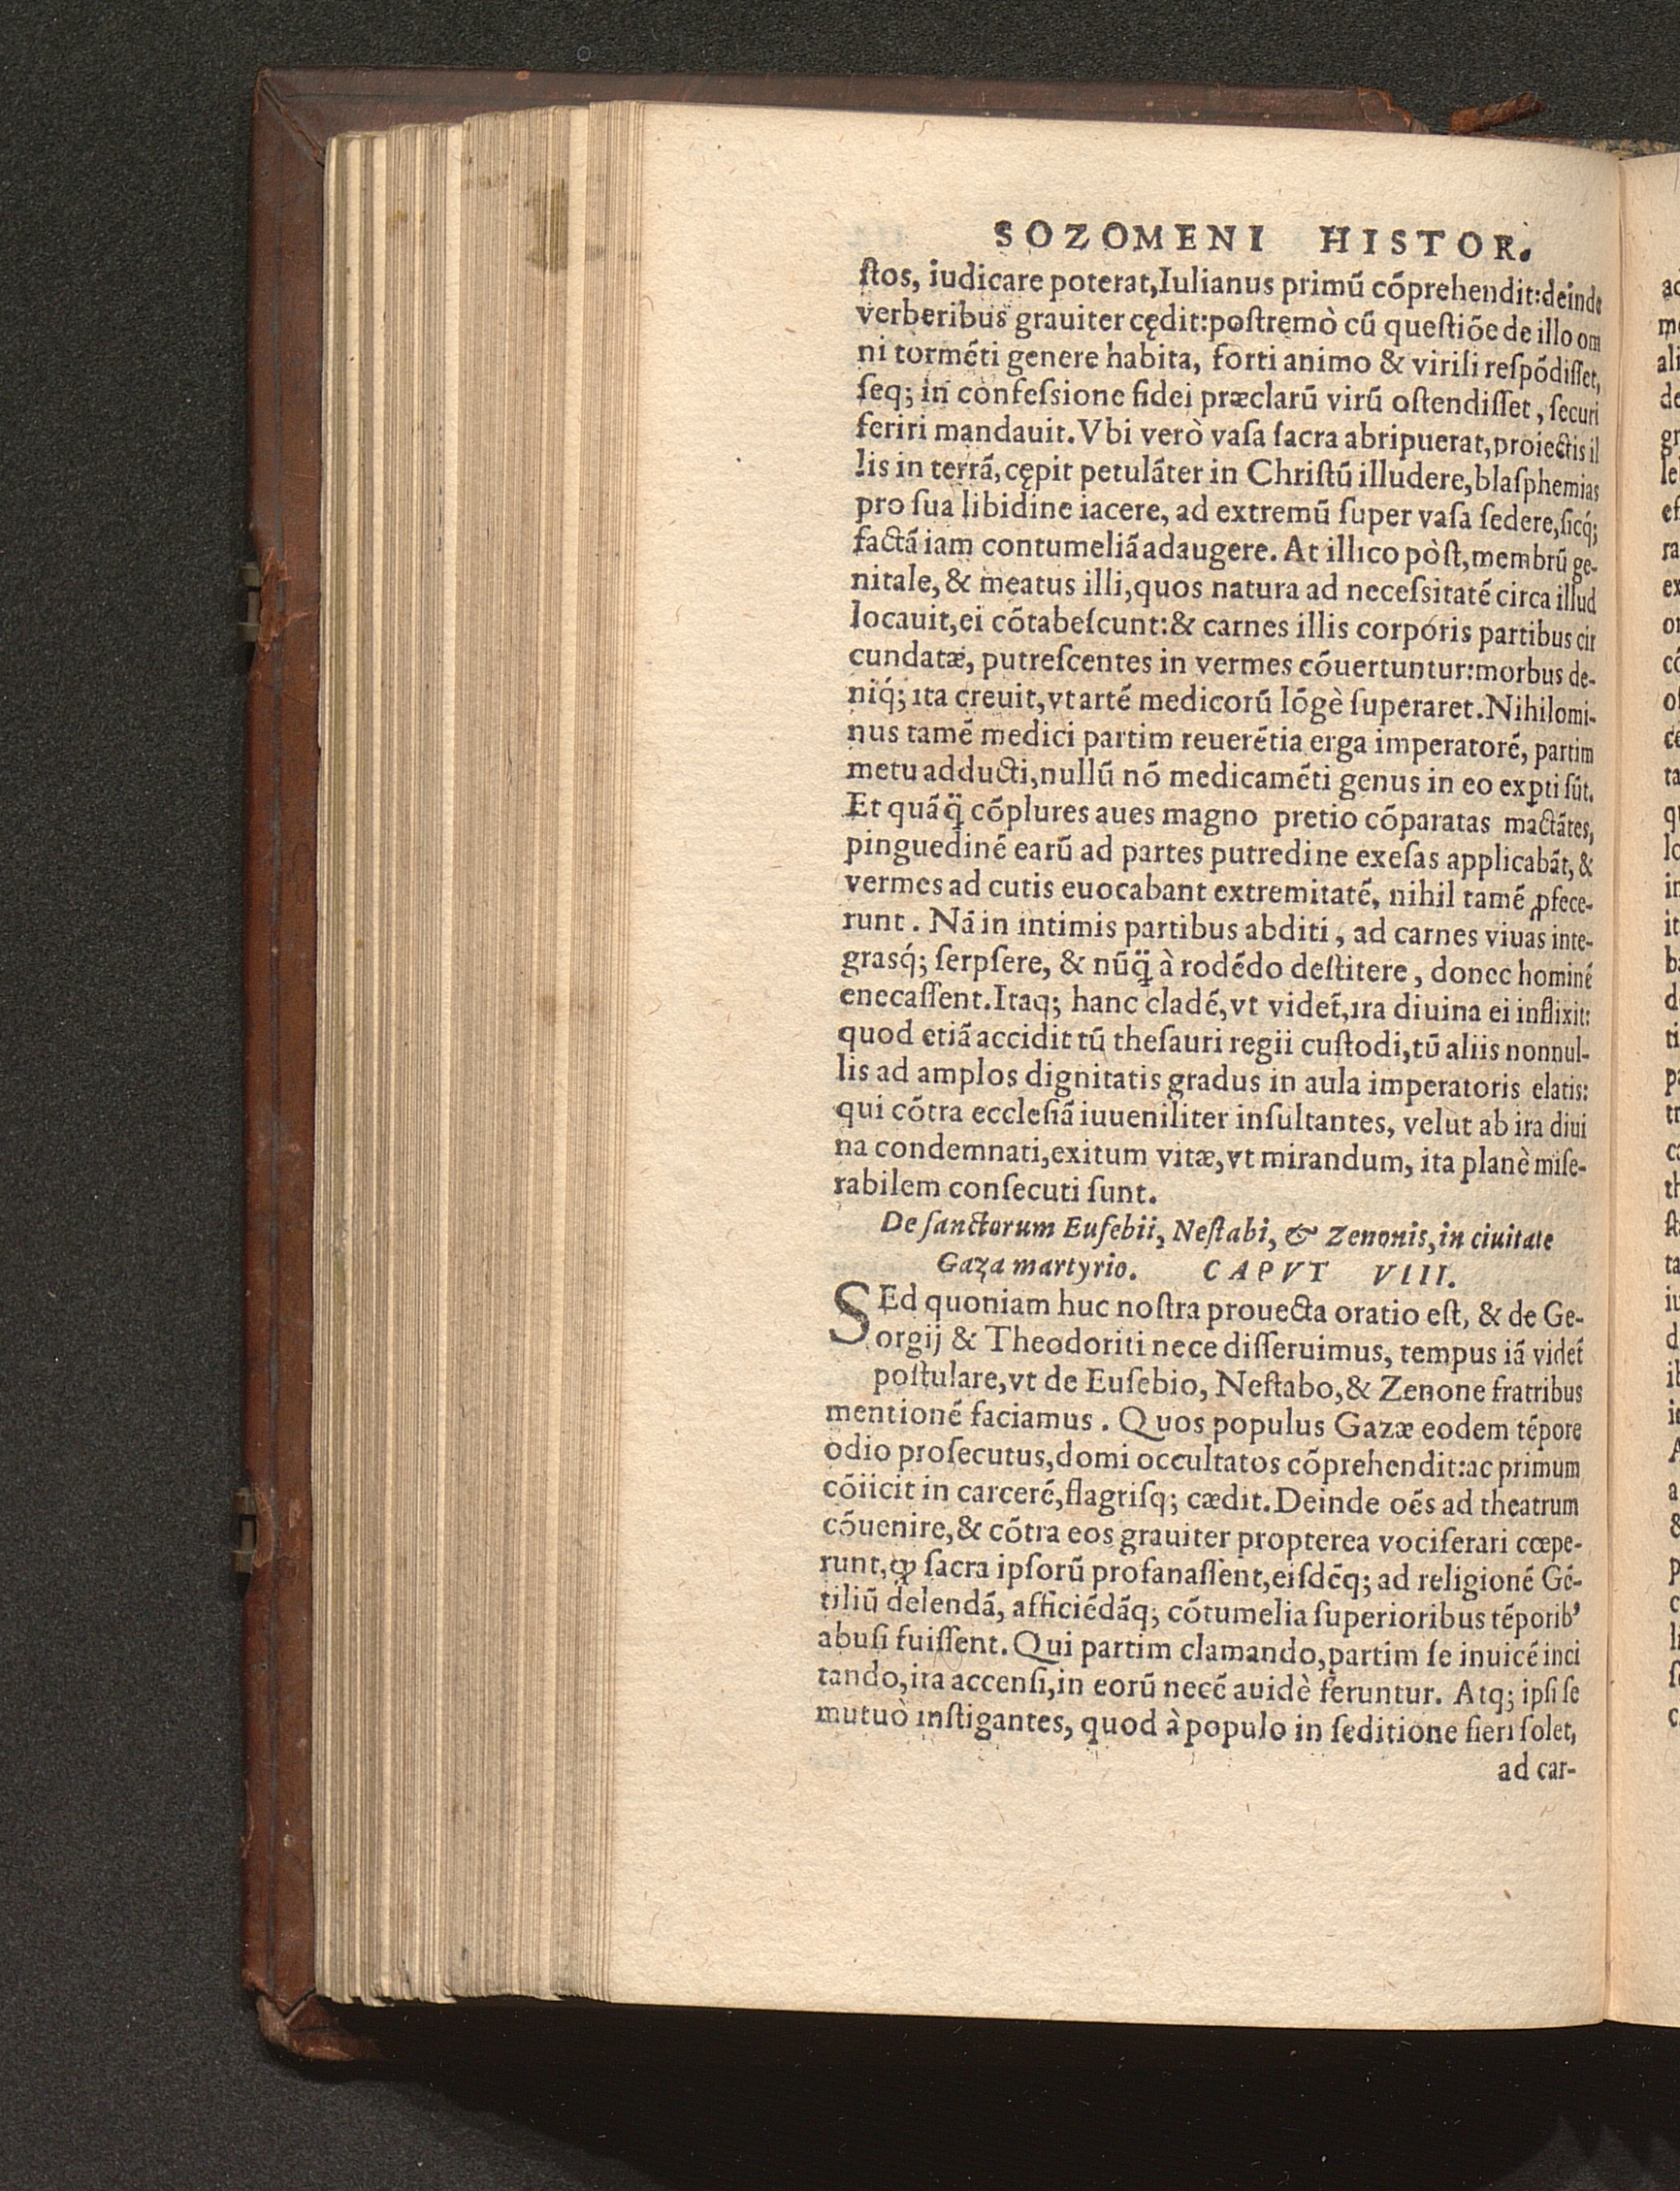 SOZOMENI HISTOR.
ſtos, iudicare poterat, Iulianus primũ cõprehendit: deinde
verberibus grauiter cędit: poſtremò cũ queſtiõe de illo om
ni torméti genere habita, forti animo & virili reſpõdiſſet,
ſeq; in confeſsione fidei præclarũ virũ oſtendiſſet, ſecuri
feriri mandauit. Vbi verò vaſa ſacra abripuerat, proiectis il
lis in terrã, cępit petulãter in Chriſtũ illudere, blaſphemias
pro ſua libidine iacere, ad extremũ ſuper vaſa ſedere, ſicq́;
factã iam contumeliã adaugere. At illico pòſt, membrũ ge-
nitale, & meatus illi, quos natura ad neceſsitatẽ circa illud
locauit, ei cõtabeſcunt: & carnes illis corporis partibus cir
cundatæ, putreſcentes in vermes cõuertuntur: morbus de-
niq́; ita creuit, vt artẽ medicorũ lõgè ſuperaret. Nihilomi-
nus tamẽ medici partim reuerẽtia erga imperatorẽ, partim
metu adducti, nullũ nõ medicamẽti genus in eo exꝑti sũt.
Et quãq̃ cõplures aues magno pretio cõparatas mactãtes,
pinguedinẽ earũ ad partes putredine exeſas applicabãt, &
vermes ad cutis euocabant extremitatẽ, nihil tamẽ ꝓfece-
runt. Nã in intimis partibus abditi, ad carnes viuas inte-
grasq́; ſerpſere, & nũq̃ à rodẽdo deſtitere, donec hominẽ
enecaſſent. Itaq; hanc cladẽ, vt videt̃, ira diuina ei inflixit:
quod etiã accidit tũ theſauri regii cuſtodi, tũ aliis nonnul-
lis ad amplos dignitatis gradus in aula imperatoris elatis:
qui cõtra eccleſiã iuueniliter inſultantes, velut ab ira diui
na condemnati, exitum vitæ, vt mirandum, ita planè miſe-
rabilem conſecuti ſunt.
De ſanctorum Euſebii, Neſtabi, & Zenonis, in ciuitate
Gaza martyrio. CAPVT VIII.
SEd quoniam huc noſtra prouecta oratio eſt, & de Ge-
orgij & Theodoriti nece diſſeruimus, tempus iã videt̃
poſtulare, vt de Euſebio, Neſtabo, & Zenone fratribus
mentionẽ faciamus. Quos populus Gazæ eodem tẽpore
odio proſecutus, domi occultatos cõprehendit: ac primum
cõiicit in carcerẽ, flagriſq; cædit. Deinde oẽs ad theatrum
cõuenire, & cõtra eos grauiter propterea vociferari cœpe-
runt, ꝙ ſacra ipſorũ profanaſſent, eiſdẽq; ad religionẽ Gẽ-
tiliũ delendã, afficiẽdãq; cõtumelia ſuperioribus tẽporib'
abuſi fuiſſent. Qui partim clamando, partim ſe inuicẽ inci
tando, ita accenſi, in eorũ necẽ auidè feruntur. Atq; ipſi ſe
mutuò inſtigantes, quod à populo in ſeditione fieri ſolet,
ad car-